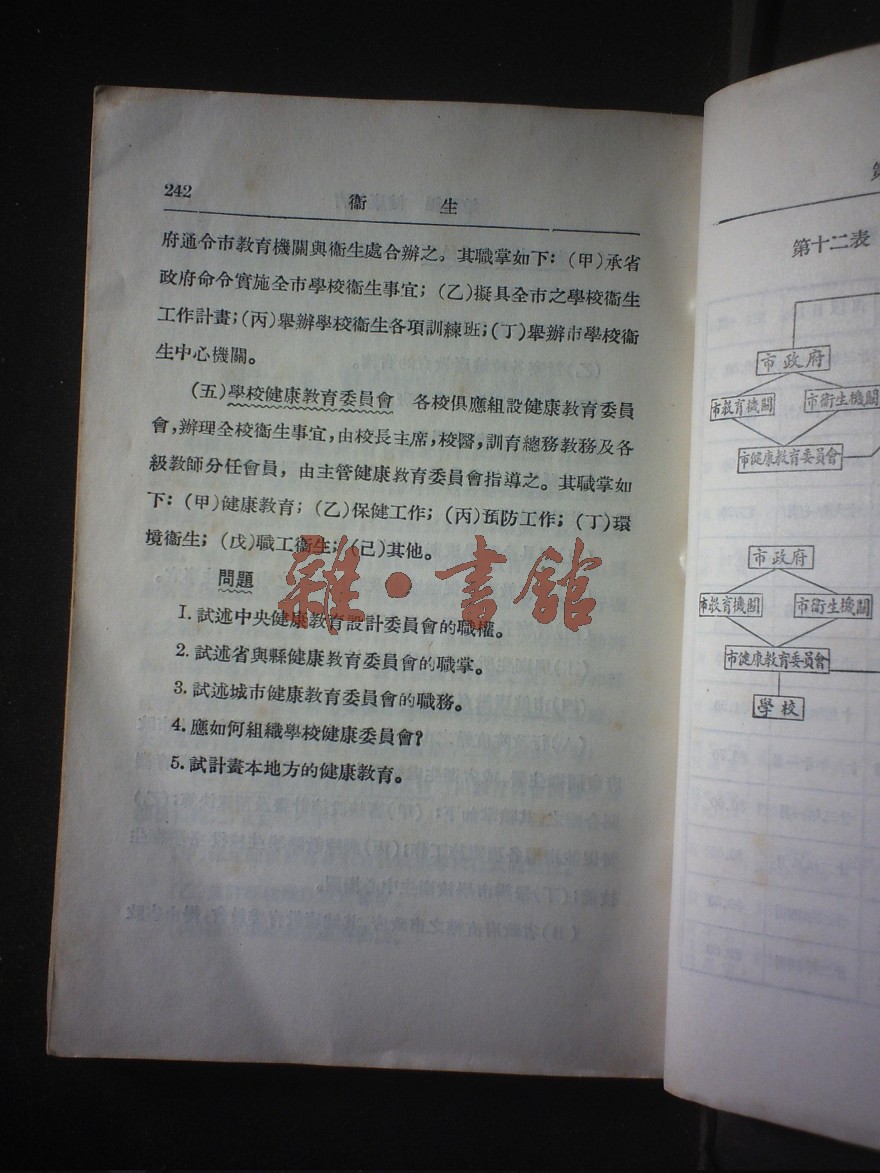 242
衞 生
府通令市教育機關與衞生處合辦之。其職掌如下：（甲）承省
政府命令實施全市學校衞生事宜；（乙）擬具全市之學校衞生
工作計畫；（丙）舉辦學校衞生各項訓練班；（丁）舉辦市學校衞
生中心機關。
（五）學校健康教育委員會 各校俱應組設健康教育委員
會，辦理全校衞生事宜，由校長主席，校醫，訓育總務教務及各
級教師分任會員，由主管健康教育委員會指導之。其職掌如
下：（甲）健康教育；（乙）保健工作；（丙）預防工作；（丁）環
境衞生；（戊）職工衞生；（己）其他。
問題
1. 試述中央健康教育設計委員會的職權。
2. 試述省與縣健康教育委員會的職掌。
3. 試述城市健康教育委員會的職務。
4. 應如何組織學校健康委員會？
5. 試計畫本地方的健康教育。
雜·書館
第十二表
市政府
市教育機關 市衞生機關
市健康教育委員會
市政府
市教育機關 市衞生機關
市健康教育委員會
學校